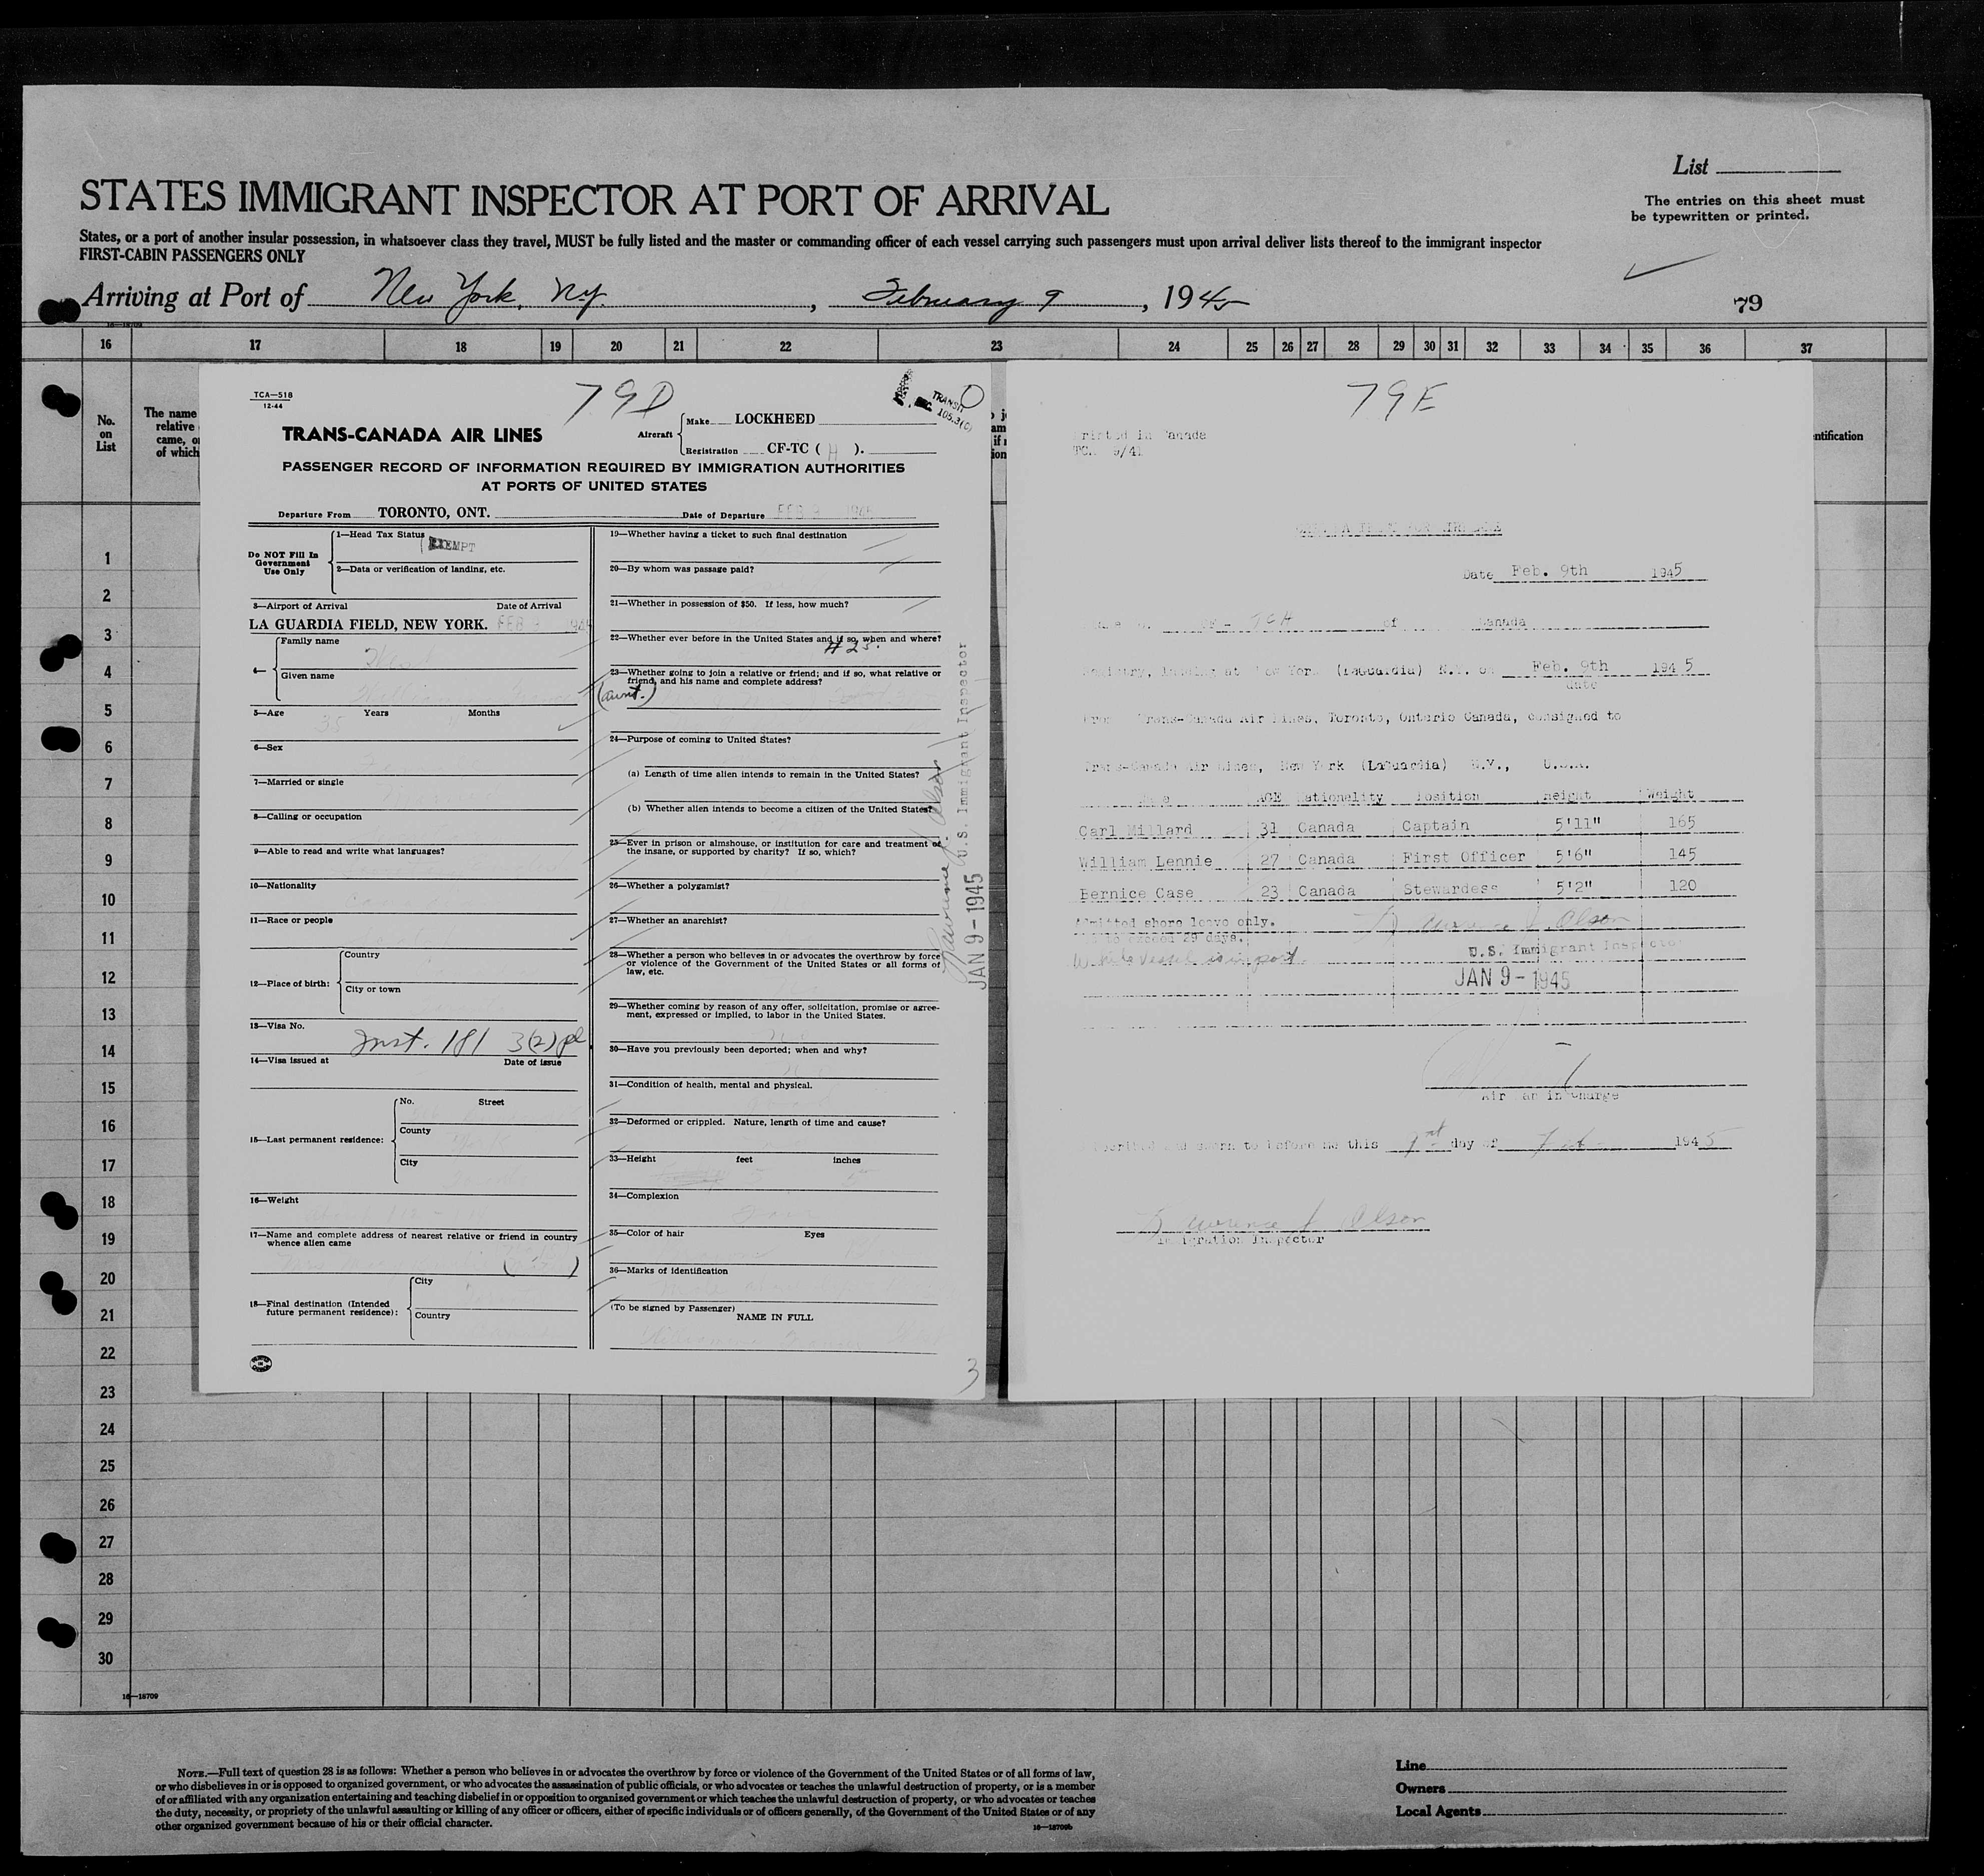 List
The entries on this sheet must
be typewritten or printed.
STATES IMMIGRANT INSPECTOR AT PORT OF ARRIVAL
States, or a port of another insular possession, in whatsoever class they travel, MUST be fully listed and the master or commanding officer of each vessel carrying such passengers must upon arrival deliver lists thereof to the immigrant inspector
FIRST-CABIN PASSENGERS ONLY
Arriving at Port of New York, N.Y., February 9, 1945
79
16 17 18 19 20 21 22 23 24 25 26 27 28 29 30 31 32 33 34 35 36 37
No. on List
The name
relative
came, o
of which
ntification
1
2
3
4
5
6
7
8
9
10
11
12
13
14
15
16
17
18
19
20
21
22
23
24
25
26
27
28
29
30
16—18709
79D
TCA—518
12-44
TRANSIT
105.3(C)
TRANS-CANADA AIR LINES
Aircraft
Make LOCKHEED
Registration CF-TC ( H ).
PASSENGER RECORD OF INFORMATION REQUIRED BY IMMIGRATION AUTHORITIES
AT PORTS OF UNITED STATES
Departure From TORONTO, ONT. Date of Departure FEB 9 1945
Do NOT Fill In
Government
Use Only
1—Head Tax Status EXEMPT
2—Data or verification of landing, etc.
3—Airport of Arrival Date of Arrival
LA GUARDIA FIELD, NEW YORK. FEB 9 1945
4— Family name
Given name
5—Age 35 Years Months
6—Sex
7—Married or single
8—Calling or occupation
9—Able to read and write what languages?
10—Nationality
11—Race or people
12—Place of birth:
Country
City or town
13—Visa No. Inst. 181 3(2) pl
14—Visa issued at Date of issue
15—Last permanent residence:
No. Street
County York
City
16—Weight
17—Name and complete address of nearest relative or friend in country
whence alien came
18—Final destination (Intended
future permanent residence):
City
Country
19—Whether having a ticket to such final destination
20—By whom was passage paid?
21—Whether in possession of $50. If less, how much?
22—Whether ever before in the United States and if so, when and where?
#25.
23—Whether going to join a relative or friend; and if so, what relative or
friend, and his name and complete address?
(aunt.)
24—Purpose of coming to United States?
(a) Length of time alien intends to remain in the United States?
(b) Whether alien intends to become a citizen of the United States?
25—Ever in prison or almshouse, or institution for care and treatment of
the insane, or supported by charity? If so, which?
26—Whether a polygamist?
27—Whether an anarchist?
28—Whether a person who believes in or advocates the overthrow by force
or violence of the Government of the United States or all forms of
law, etc.
29—Whether coming by reason of any offer, solicitation, promise or agree-
ment, expressed or implied, to labor in the United States.
30—Have you previously been deported; when and why?
31—Condition of health, mental and physical.
32—Deformed or crippled. Nature, length of time and cause?
33—Height feet inches
34—Complexion
35—Color of hair Eyes
36—Marks of identification
(To be signed by Passenger)
NAME IN FULL
3
Lawrence J. Olson
JAN 9-1945 U.S. Immigrant Inspector
79E
Printed in Canada
TCA 9/41
Date Feb. 9th 1945
CF - TCH of Canada
landing at New York (LaGuardia) N.Y. on Feb. 9th 1945
date
From Trans-Canada Air Lines, Toronto, Ontario Canada, consigned to
Trans-Canada Air Lines, New York (LaGuardia) N.Y., U.S.A.
Name AGE Nationality Position Height Weight
Carl Millard 31 Canada Captain 5'11" 165
William Lennie 27 Canada First Officer 5'6" 145
Bernice Case 23 Canada Stewardess 5'2" 120
Admitted shore leave only.
Not to exceed 29 days.
While vessel is in port.
Lawrence J. Olson
U.S. Immigrant Inspector
JAN 9-1945
Airman in Charge
Subscribed and sworn to before me this day of Feb 1945
Lawrence J. Olson
Immigration Inspector
NOTE.—Full text of question 28 is as follows: Whether a person who believes in or advocates the overthrow by force or violence of the Government of the United States or of all forms of law,
or who disbelieves in or is opposed to organized government, or who advocates the assassination of public officials, or who advocates or teaches the unlawful destruction of property, or is a member
of or affiliated with any organization entertaining and teaching disbelief in or opposition to organized government or which teaches the unlawful destruction of property, or who advocates or teaches
the duty, necessity, or propriety of the unlawful assaulting or killing of any officer or officers, either of specific individuals or of officers generally, of the Government of the United States or of any
other organized government because of his or their official character.
16—18709b
Line
Owners
Local Agents